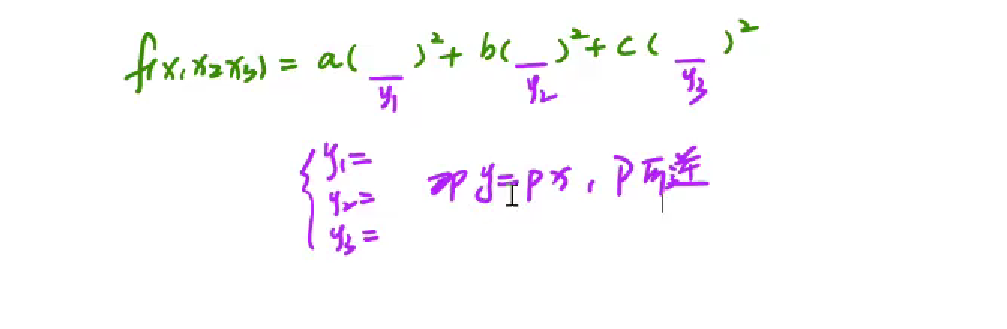 f(x₁x₂x₃) = a(__)² + b(__)² + c(__)²
y₁ y₂ y₃
y₁=
y₂= 即 y=px, P可逆
y₃=